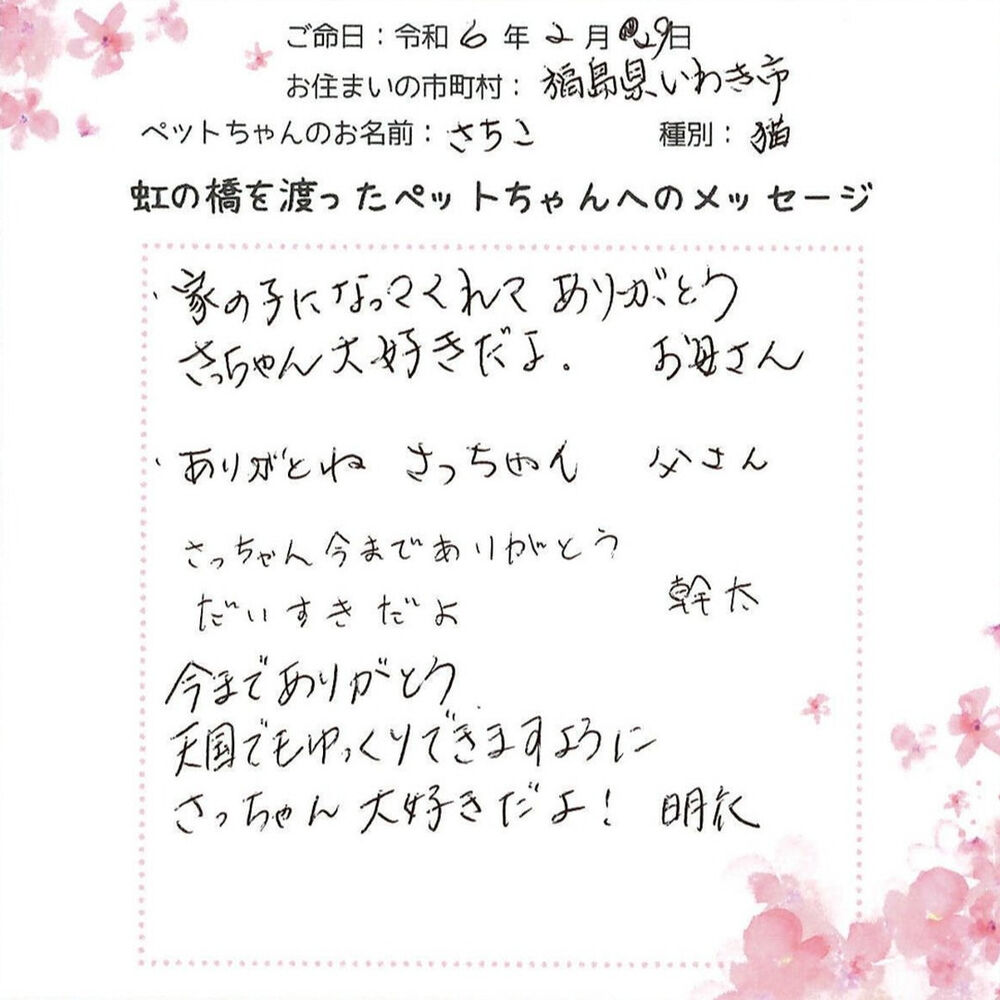 ご命日：令和6年2月29日
お住まいの市町村：福島県いわき市
ペットちゃんのお名前：さちこ 種別：猫
虹の橋を渡ったペットちゃんへのメッセージ
・家の子になってくれてありがとう
さっちゃん大好きだよ. お母さん
・ありがとね さっちゃん 父さん
さっちゃん今までありがとう
だいすきだよ 幹太
今までありがとう
天国でもゆっくりできますように
さっちゃん大好きだよ! 明衣